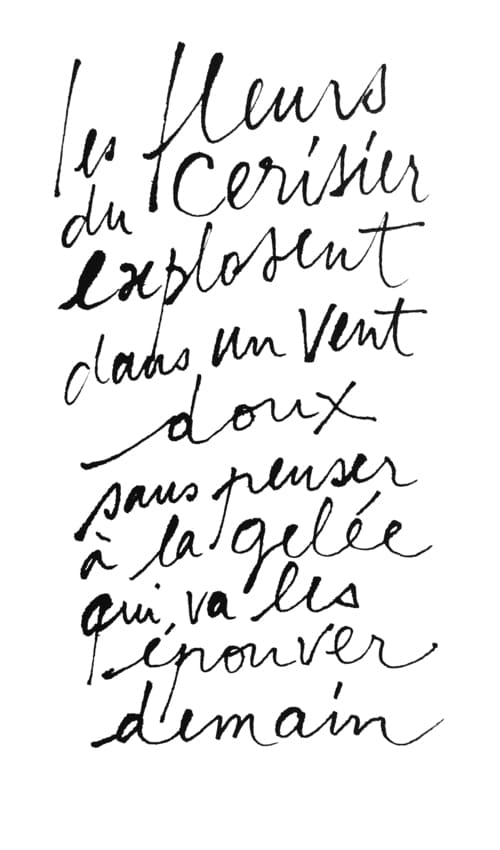 les fleurs
du cerisier
explosent
dans un vent
doux
sans penser
à la gelée
qui va les
épouver
demain